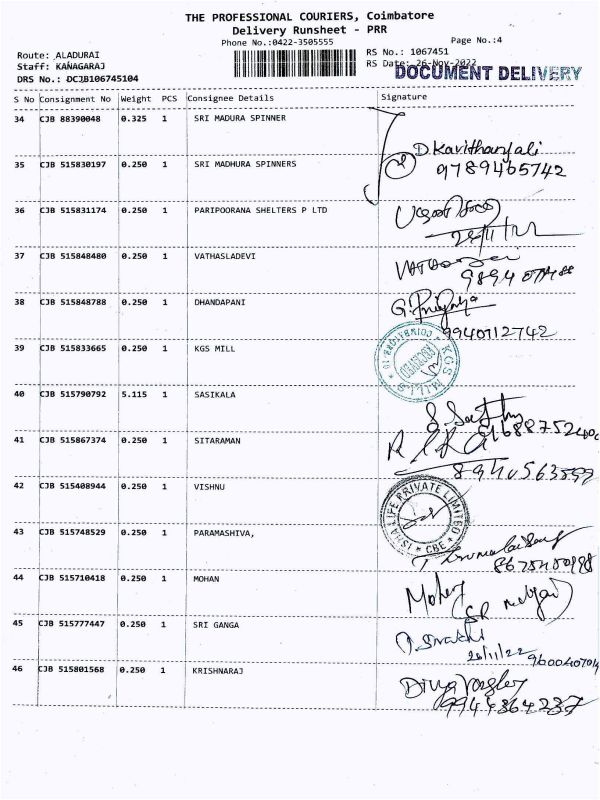 THE PROFESSIONAL COURIERS, Coimbatore
Delivery Runsheet - PRR
Phone No.:0422-3505555
Page No.:4
Route: ALADURAI
RS No.: 1067451
Staff: KANAGARAJ
RS Date: 26-Nov-2022
DRS No.: DCJB106745104
DOCUMENT DELIVERY
S No Consignment No Weight PCS Consignee Details Signature
34 CJB 88390048 0.325 1 SRI MADURA SPINNER
D. Kavitha
9789465742
35 CJB 515830197 0.250 1 SRI MADHURA SPINNERS
36 CJB 515831174 0.250 1 PARIPOORANA SHELTERS P LTD
37 CJB 515848480 0.250 1 VATHASLADEVI
38 CJB 515848788 0.250 1 DHANDAPANI
G.
9940712742
39 CJB 515833665 0.250 1 KGS MILL
KGS MILLS
RECEIVED
40 CJB 515790792 5.115 1 SASIKALA
41 CJB 515867374 0.250 1 SITARAMAN
42 CJB 515408944 0.250 1 VISHNU
LIFE PRIVATE LIMITED
CBE
43 CJB 515748529 0.250 1 PARAMASHIVA,
44 CJB 515710418 0.250 1 MOHAN
45 CJB 515777447 0.250 1 SRI GANGA
26/11/22
46 CJB 515801568 0.250 1 KRISHNARAJ
9944364237